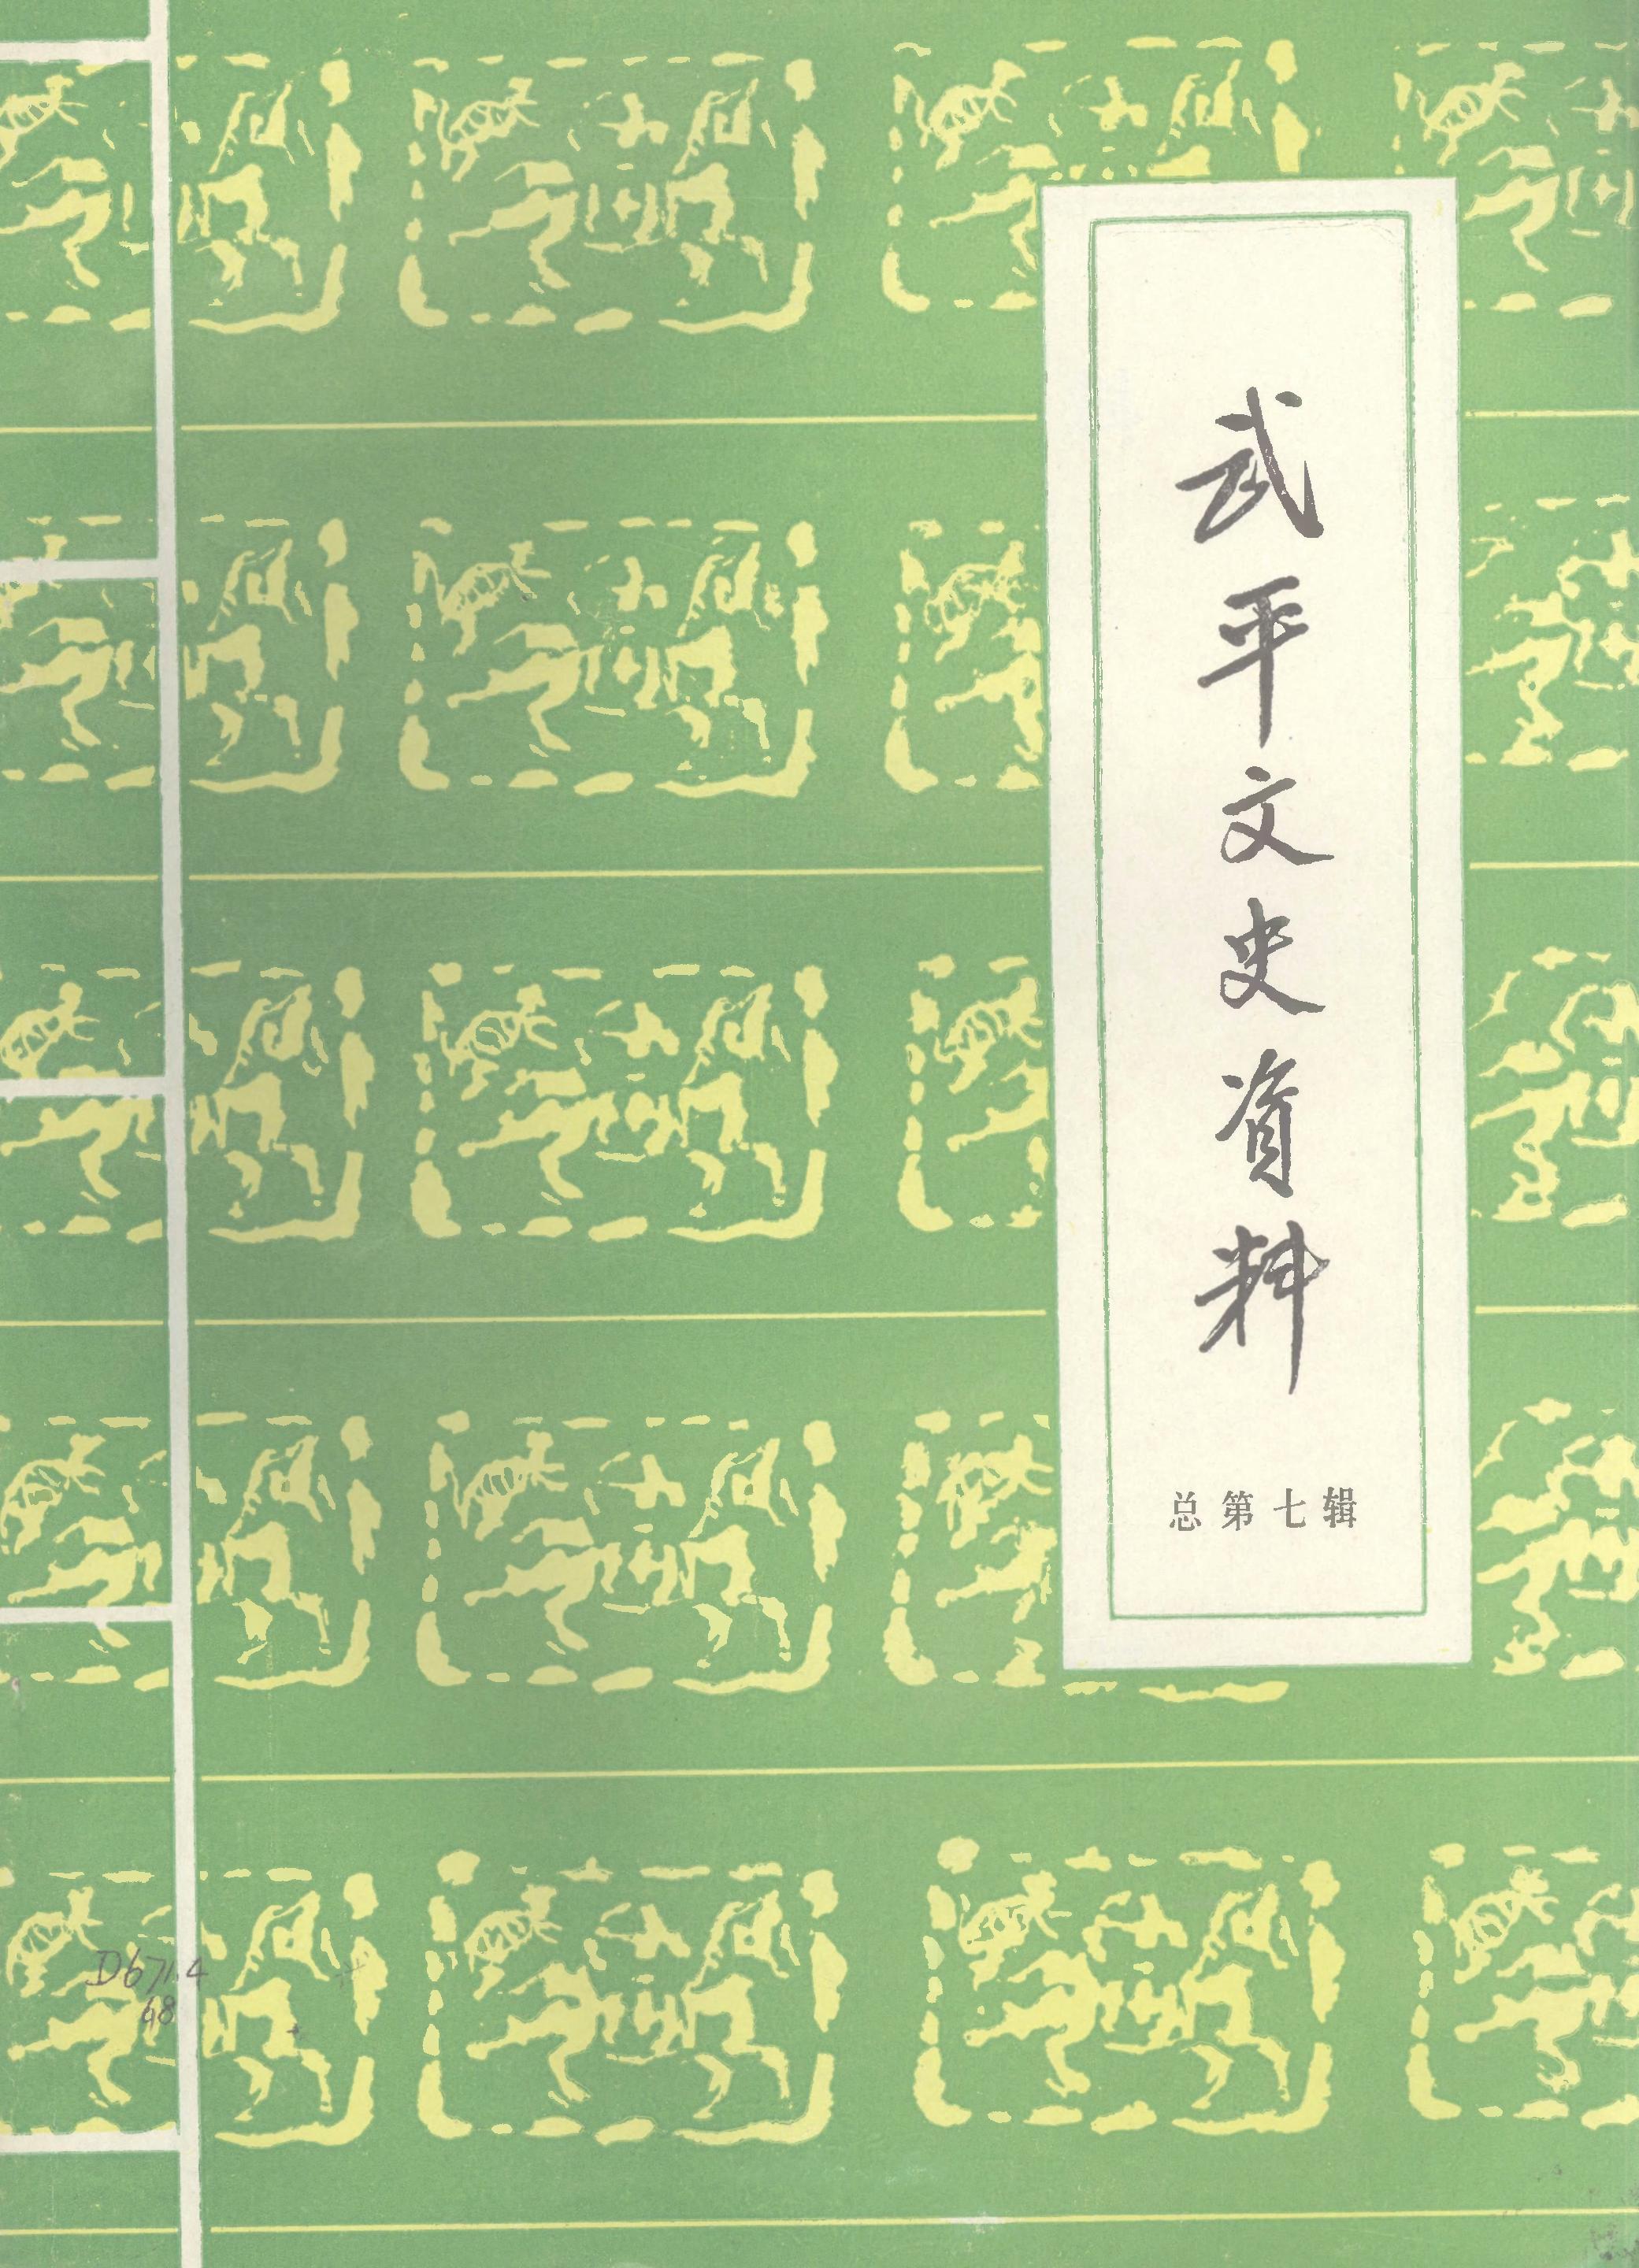 武平文史资料
总第七辑
D671.4
68